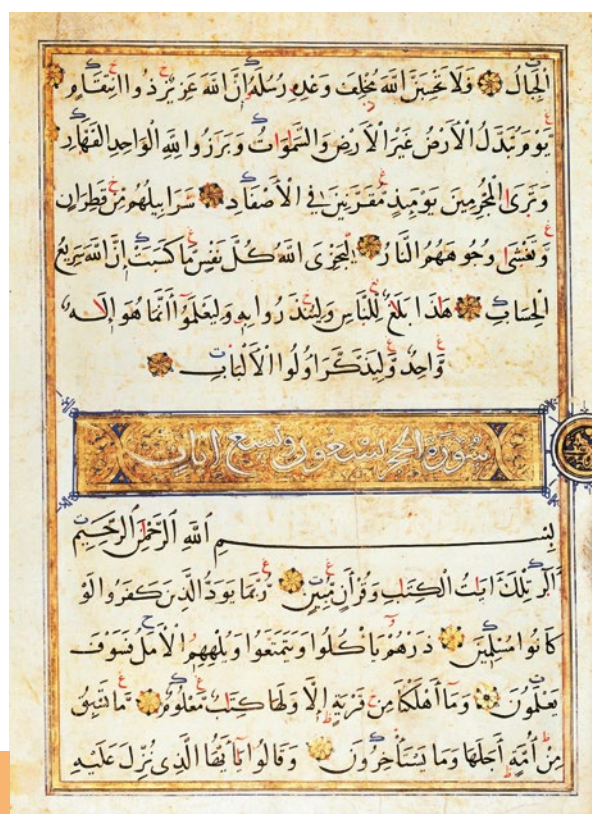 الْجِبَالُ فَلَا تَحْسَبَنَّ اللهَ مُخْلِفَ وَعْدِهِ رُسُلَهُ إِنَّ اللهَ عَزِيزٌ ذُوا انْتِقَامٍ
يَوْمَ تُبَدَّلُ الْأَرْضُ غَيْرَ الْأَرْضِ وَالسَّمٰوَاتُ وَبَرَزُوا لِلّٰهِ الْوَاحِدِ الْقَهَّارِ
وَتَرَى الْمُجْرِمِينَ يَوْمَئِذٍ مُقَرَّنِينَ فِي الْأَصْفَادِ سَرَابِيلُهُمْ مِنْ قَطِرَانٍ
وَتَغْشَى وُجُوهَهُمُ النَّارُ لِيَجْزِيَ اللهُ كُلَّ نَفْسٍ مَا كَسَبَتْ إِنَّ اللهَ سَرِيعُ
الْحِسَابِ هٰذَا بَلَاغٌ لِلنَّاسِ وَلِيُنْذَرُوا بِهِ وَلِيَعْلَمُوا أَنَّمَا هُوَ إِلٰهٌ
وَاحِدٌ وَلِيَذَّكَّرَ أُولُوا الْأَلْبَابِ
سورة الحجر تسعون وتسع آيات
بِسْمِ اللهِ الرَّحْمٰنِ الرَّحِيمِ
الٓر تِلْكَ آيَاتُ الْكِتَابِ وَقُرْآنٍ مُبِينٍ رُبَمَا يَوَدُّ الَّذِينَ كَفَرُوا لَوْ
كَانُوا مُسْلِمِينَ ذَرْهُمْ يَأْكُلُوا وَيَتَمَتَّعُوا وَيُلْهِهِمُ الْأَمَلُ فَسَوْفَ
يَعْلَمُونَ وَمَا أَهْلَكْنَا مِنْ قَرْيَةٍ إِلَّا وَلَهَا كِتَابٌ مَعْلُومٌ مَا تَسْبِقُ
مِنْ أُمَّةٍ أَجَلَهَا وَمَا يَسْتَأْخِرُونَ وَقَالُوا يَا أَيُّهَا الَّذِي نُزِّلَ عَلَيْهِ